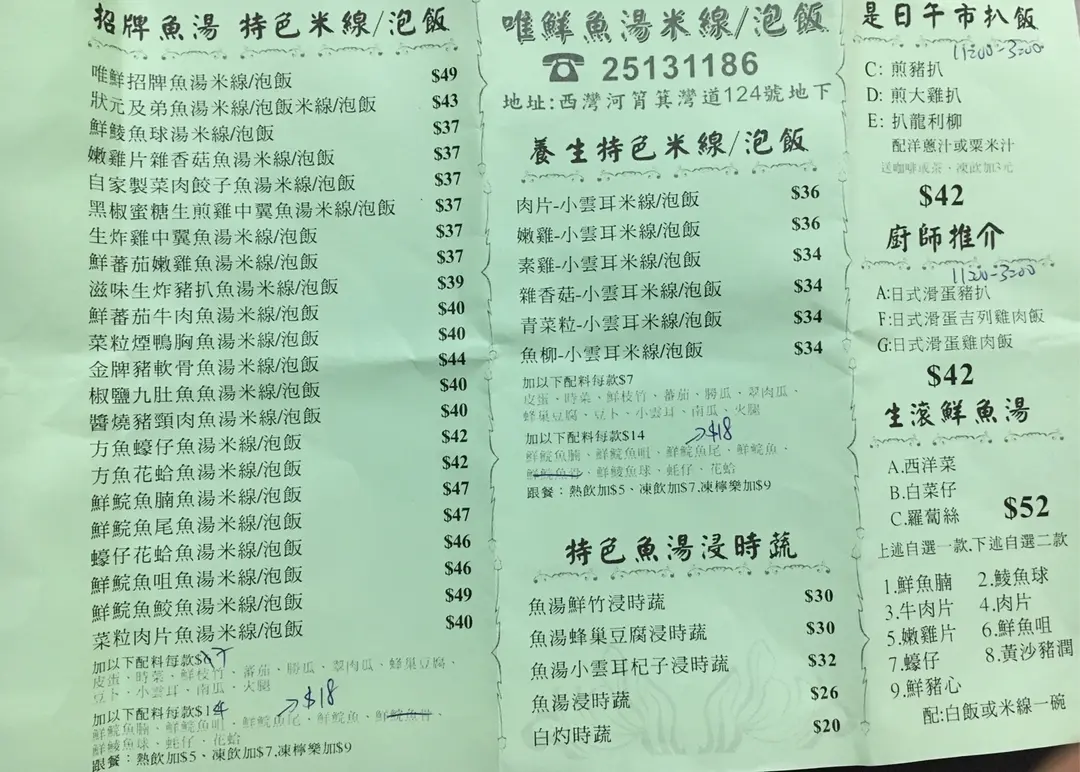 招牌魚湯 特色米線/泡飯
唯鮮招牌魚湯米線/泡飯 $49
狀元及弟魚湯米線/泡飯米線/泡飯 $43
鮮鯪魚球湯米線/泡飯 $37
嫩雞片雜香菇魚湯米線/泡飯 $37
自家製菜肉餃子魚湯米線/泡飯 $37
黑椒蜜糖生煎雞中翼魚湯米線/泡飯 $37
生炸雞中翼魚湯米線/泡飯 $37
鮮蕃茄嫩雞魚湯米線/泡飯 $37
滋味生炸豬扒魚湯米線/泡飯 $39
鮮蕃茄牛肉魚湯米線/泡飯 $40
菜粒煙鴨胸魚湯米線/泡飯 $40
金牌豬軟骨魚湯米線/泡飯 $44
椒鹽九肚魚魚湯米線/泡飯 $40
醬燒豬頸肉魚湯米線/泡飯 $40
方魚蠔仔魚湯米線/泡飯 $42
方魚花蛤魚湯米線/泡飯 $42
鮮鯇魚腩魚湯米線/泡飯 $47
鮮鯇魚尾魚湯米線/泡飯 $47
蠔仔花蛤魚湯米線/泡飯 $46
鮮鯇魚咀魚湯米線/泡飯 $46
鮮鯇魚鮫魚湯米線/泡飯 $49
菜粒肉片魚湯米線/泡飯 $40
加以下配料每款$7
皮蛋、時菜、鮮枝竹、蕃茄、勝瓜、翠肉瓜、蜂巢豆腐、
豆卜、小雲耳、南瓜、火腿
加以下配料每款$14 →$18
鮮鯇魚腩、鮮鯇魚咀、鮮鯇魚尾、鮮鯇魚、鮮鯇魚骨、
鮮鯪魚球、蚝仔、花蛤
跟餐：熱飲加$5、凍飲加$7.凍檸樂加$9
唯鮮魚湯米線/泡飯
☎ 25131186
地址:西灣河筲箕灣道124號地下
養生特色米線/泡飯
肉片-小雲耳米線/泡飯 $36
嫩雞-小雲耳米線/泡飯 $36
素雞-小雲耳米線/泡飯 $34
雜香菇-小雲耳米線/泡飯 $34
青菜粒-小雲耳米線/泡飯 $34
魚柳-小雲耳米線/泡飯 $34
加以下配料每款$7
皮蛋、時菜、鮮枝竹、蕃茄、勝瓜、翠肉瓜、
蜂巢豆腐、豆卜、小雲耳、南瓜、火腿
加以下配料每款$14 →$18
鮮鯇魚腩、鮮鯇魚咀、鮮鯇魚尾、鮮鯇魚、
鮮鯇魚骨、鮮鯪魚球、蚝仔、花蛤
跟餐：熱飲加$5、凍飲加$7.凍檸樂加$9
特色魚湯浸時蔬
魚湯鮮竹浸時蔬 $30
魚湯蜂巢豆腐浸時蔬 $30
魚湯小雲耳杞子浸時蔬 $32
魚湯浸時蔬 $26
白灼時蔬 $20
是日午市扒飯
11:00-3:00
C: 煎豬扒
D: 煎大雞扒
E: 扒龍利柳
配洋蔥汁或粟米汁
送咖啡或茶、凍飲加3元
$42
廚師推介
11:20-3:00
A:日式滑蛋豬扒
F:日式滑蛋吉列雞肉飯
G:日式滑蛋雞肉飯
$42
生滾鮮魚湯
A.西洋菜
B.白菜仔
C.羅蔔絲 $52
上述自選一款.下述自選二款
1.鮮魚腩 2.鯪魚球
3.牛肉片 4.肉片
5.嫩雞片 6.鮮魚咀
7.蠔仔 8.黃沙豬潤
9.鮮豬心
配:白飯或米線一碗